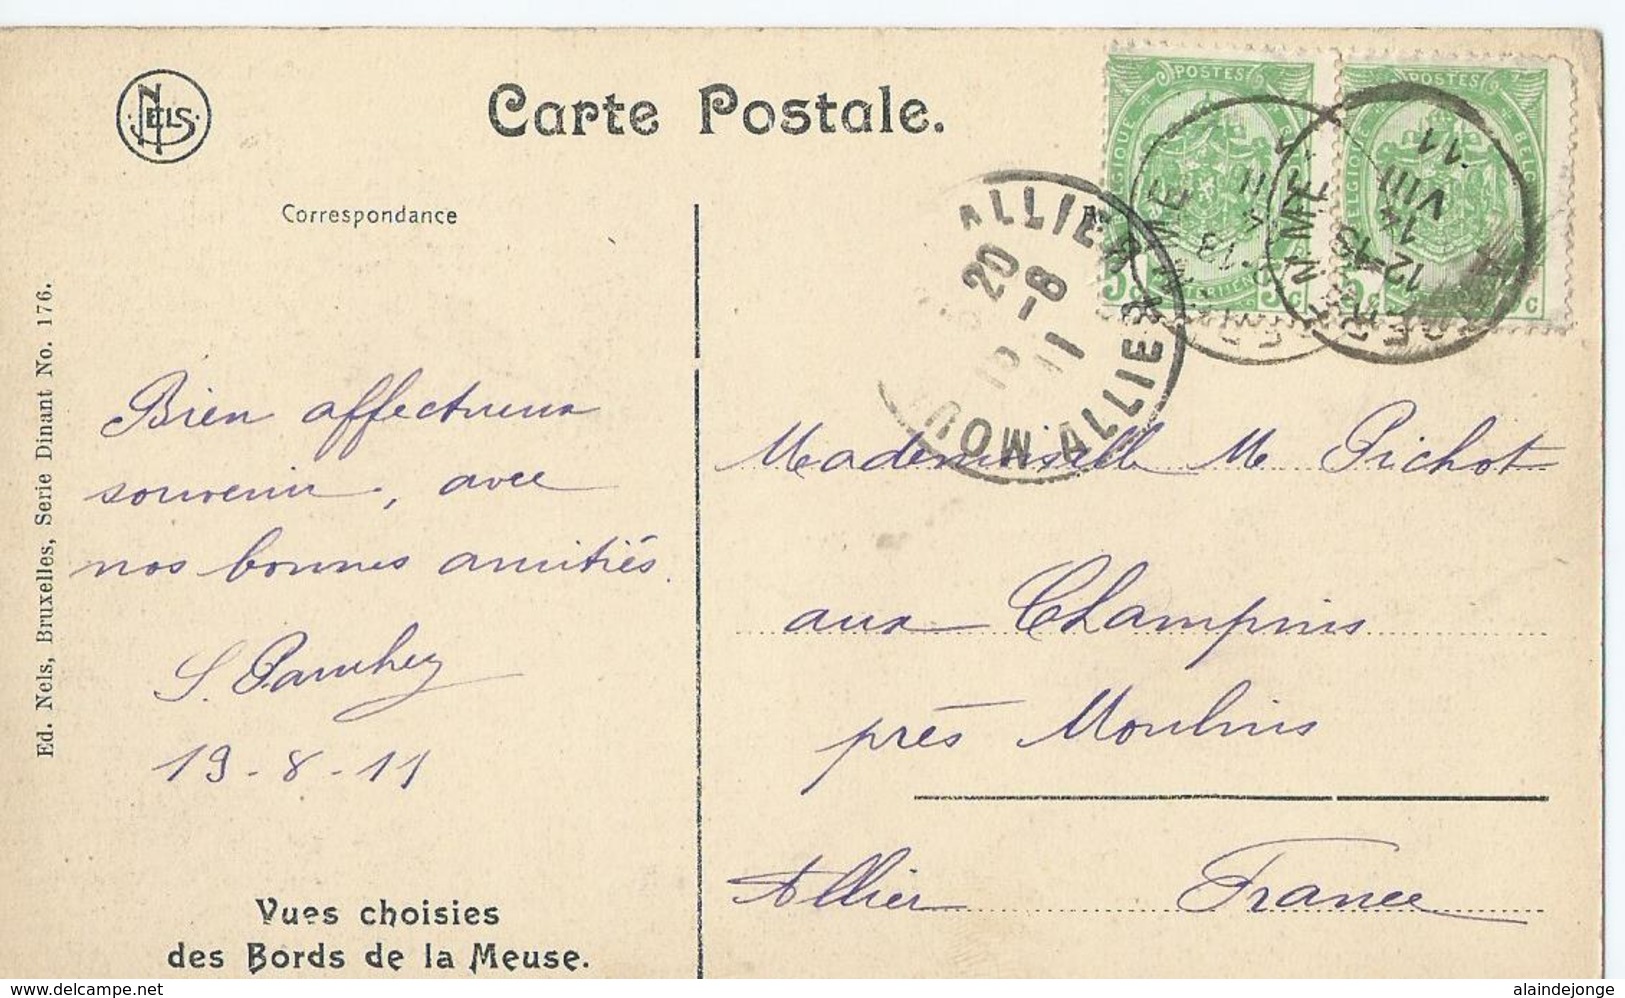 NELS
Carte Postale.
POSTES
POSTES
BELGIQUE
5c
5c
ALLIER
20 -8
11
MOULINS ALLIER
12-13
14
VIII
11
Correspondance
Ed. Nels, Bruxelles, Serie Dinant No. 176.
Bien affectueux
souvenir, avec
nos bonnes amitiés.
19-8-11
Mademoiselle M Pichot
aux Champins
près Moulins
Allier France
Vues choisies
des Bords de la Meuse.
www.delcampe.net
alaindejonge